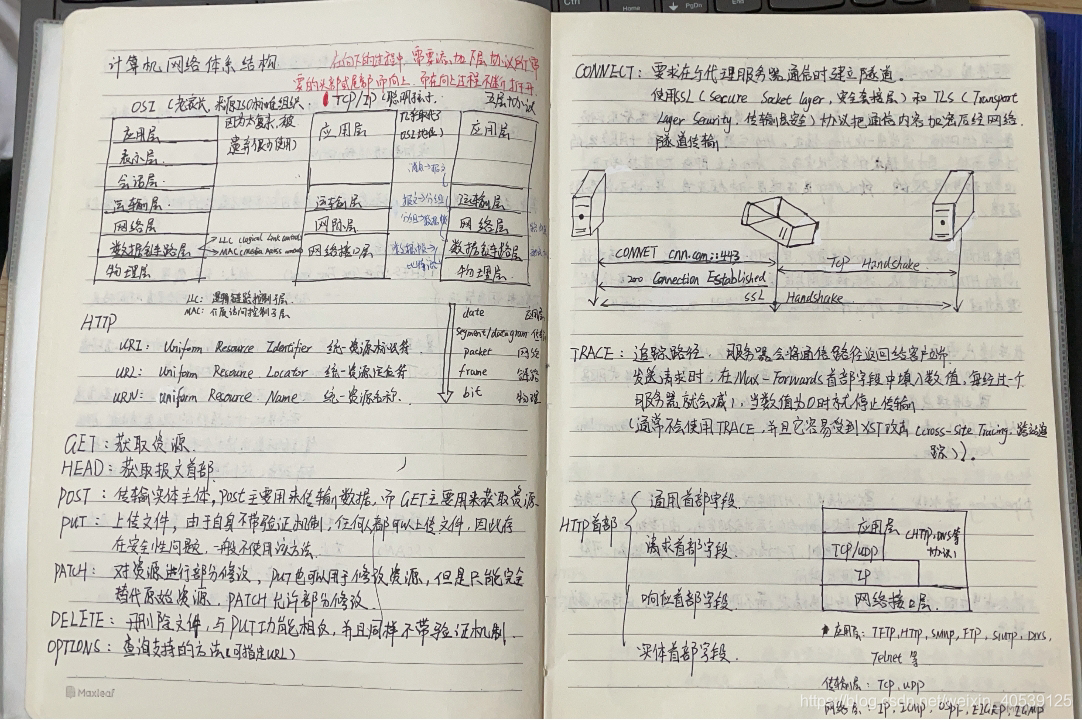 计算机网络体系结构
在向下的过程中,需要添加下层协议所需
要的头部或尾部,而向上
OSI
TCP/IP
五层协议
应用层
应用层
应用层
表示层
会话层
运输层
运输层
运输层
网络层
网际层
网络层
数据链路层
LLC (Logical Link control)
MAC (Media Access
网络接口层
数据链路层
物理层
物理层
LLC: 逻辑链路控制子层
MAC: 介质访问控制子层
HTTP
date
segment/datagram
packet 网络
frame 链路
bit 物理
URI: Uniform Resource Identifier 统一资源标识符
URL: Uniform Resource Locator 统一资源定位符
URN: Uniform Resource Name 统一资源名称.
GET: 获取资源.
HEAD: 获取报文首部.
POST: 传输实体主体, Post主要用来传输数据, 而GET主要用来获取资源.
PUT: 上传文件, 由于自身不带验证机制, 任何人都可以上传文件, 因此存
在安全性问题, 一般不使用该方法.
PATCH: 对资源进行部分修改, PUT也可以用于修改资源, 但是只能完全
替代原始资源, PATCH 允许部分修改.
DELETE: 删除文件, 与PUT功能相反, 并且同样不带验证机制.
OPTIONS: 查询支持的方法(可指定URL)
Maxleaf
Ctrl
Home
PgDn
End
CONNECT: 要求在与代理服务器通信时建立隧道.
使用SSL (Secure Socket Layer, 安全套接层) 和 TLS (Transport
Layer Security, 传输层安全) 协议把通信内容加密后经网络
隧道传输
CONNET cnn.com:443
TCP Handshake
200 Connection Established
SSL Handshake
TRACE: 追踪路径. 服务器会将通信路径返回给客户端.
发送请求时, 在Max-Forwards首部字段中填入数值, 每经过一个
服务器就会减1, 当数值为0时就停止传输
(通常不会使用TRACE, 并且它容易受到XST攻击 (cross-site Tracing, 跨站追
踪)).
HTTP首部
通用首部字段.
请求首部字段
响应首部字段.
实体首部字段.
应用层
(HTTP, DNS等
协议)
TCP/UDP
IP
网络接口层.
应用层: TFTP, HTTP, SNMP, FTP, SMTP, DNS,
Telnet 等
传输层: TCP, UDP
网络层: IP, ICMP, OSPF, EIGRP, IGMP
https://blog.csdn.net/weixin_40539125